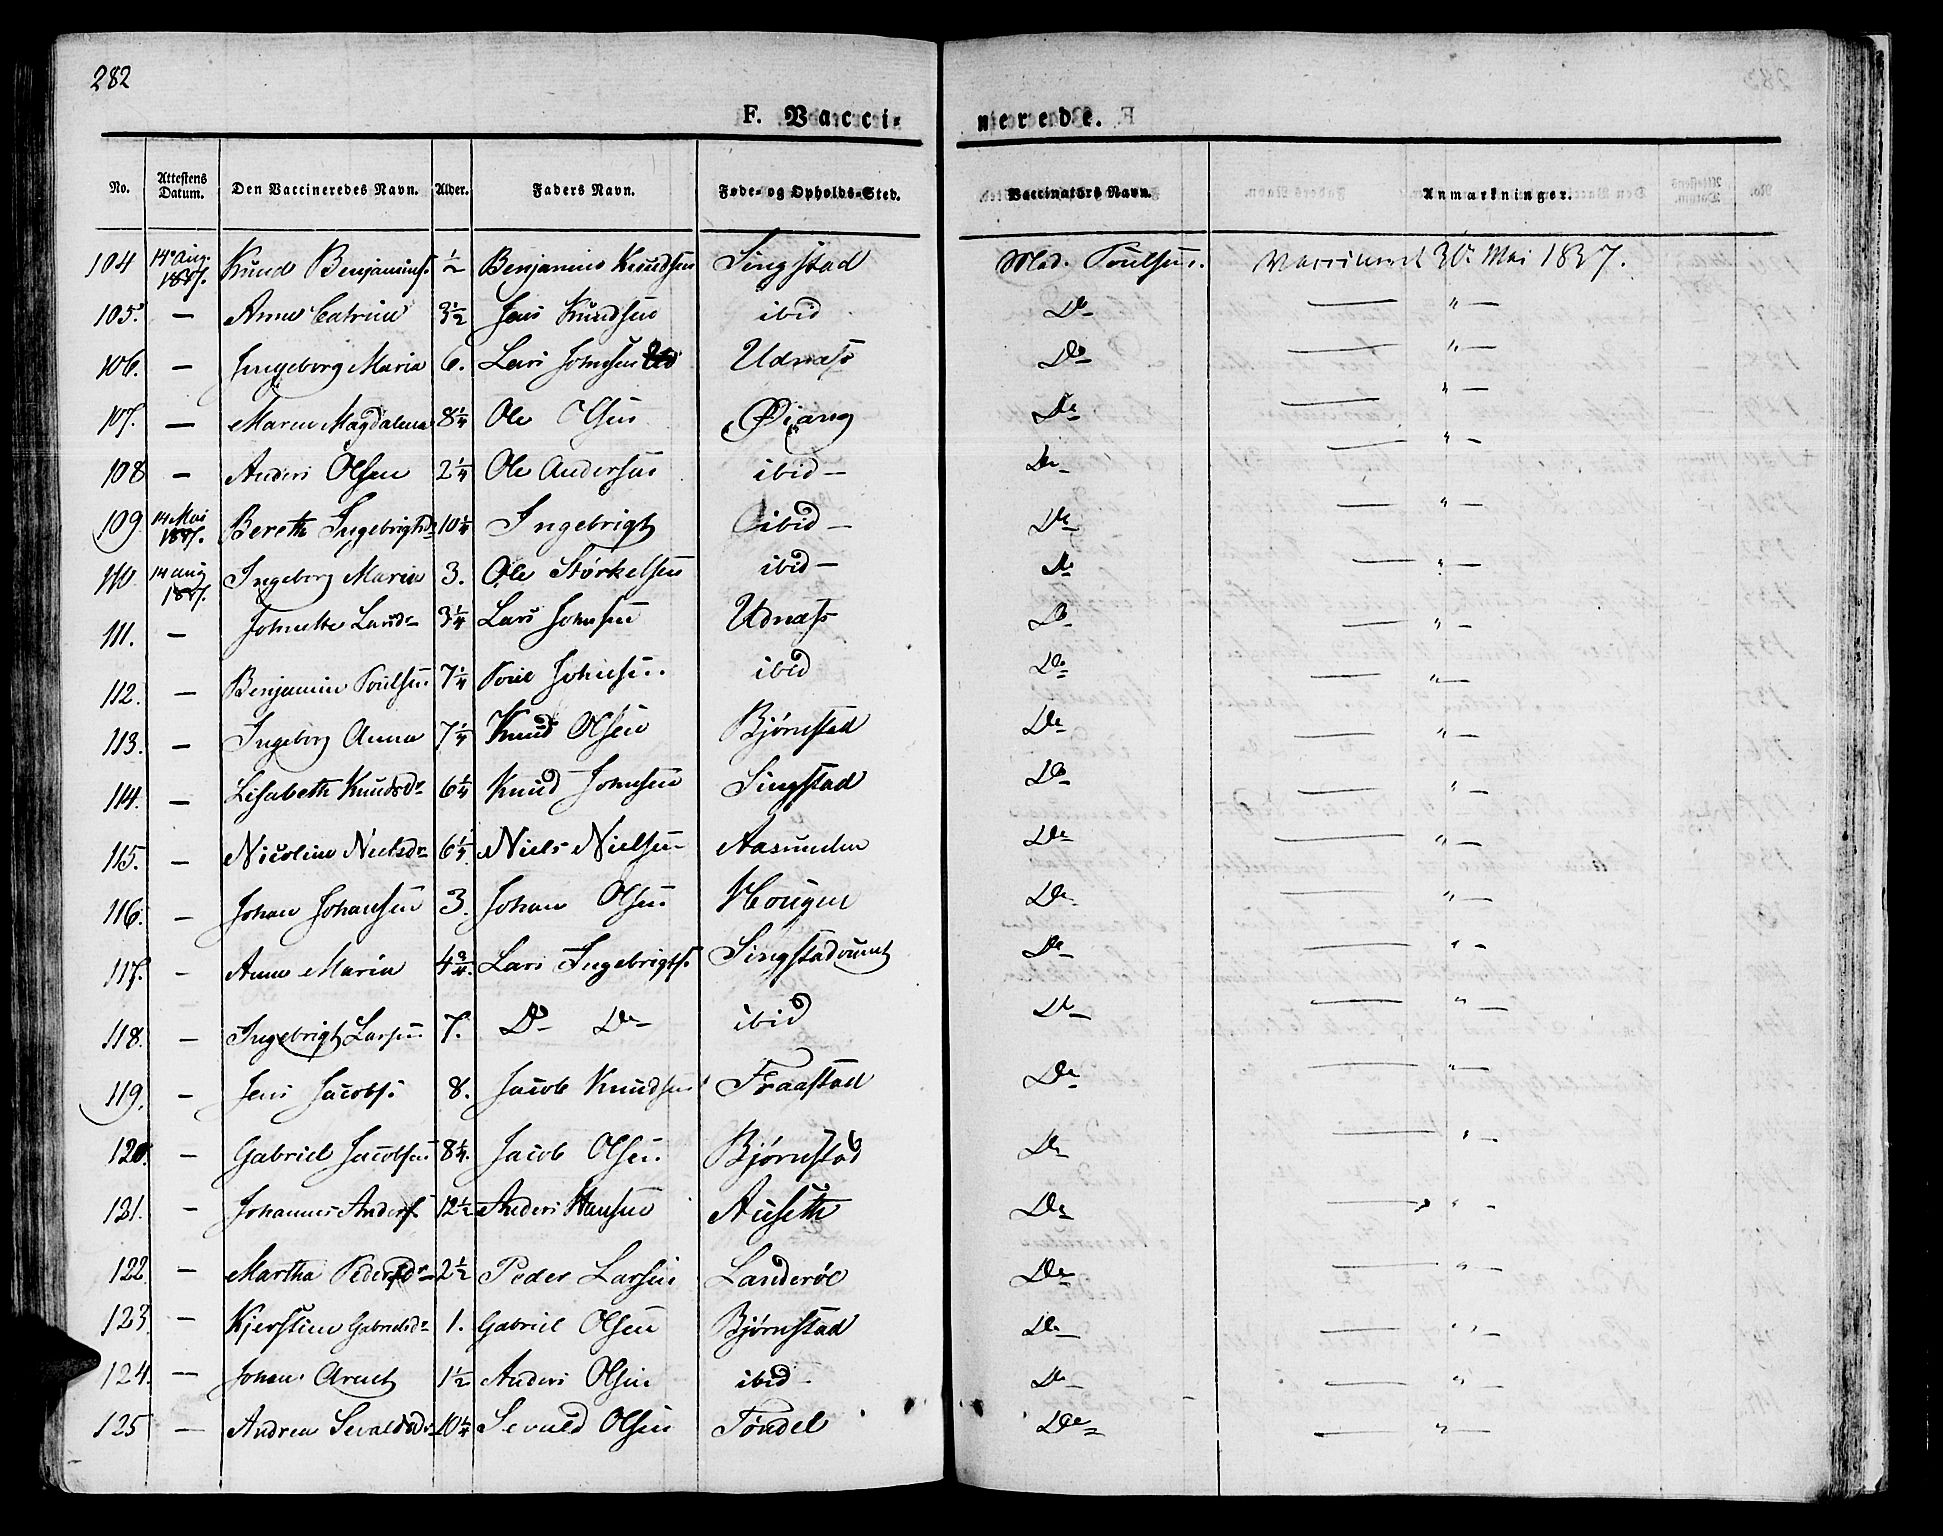 282
F. Vacci- nerede.
No. Attestens Datum. Den Vaccineredes Navn. Alder. Faders Navn. Føde- og Opholds-Sted. Vaccinatørs Navn. Anmærkninger.
104 14 Aug. 1837. Knud Benjamins. ½ Benjamin Knudsen Singstad Mad. Poulsen. Vaccineret 30te Mai 1837.
105. — Anne Catrine 3½ Jens Knudsen ibid Do — " —
106. — Ingeborg Maria 6. Lars Johnsen Udnæss Do — " —
107. — Maren Magdalena 8¼ Ole Olsen Øiang Do — " —
108 — Anders Olsen 2¼ Ole Andersen ibid — Do — " —
109. 14 Mai 1837. Bereth Ingebrigtsd. 10¼ Ingebrigt ibid — Do — " —
110. 14 Aug 1837. Ingeborg Maria 3. Ole Størkelsen ibid — Do — " —
111. — Johnette Larsdr 3¼ Lars Johnsen Udnæss Do — " —
112. — Benjamin Poulsen 7¼ Poul Johnsen. ibid Do — " —
113. — Ingeborg Anna 7¼ Knud Olsen Bjørnstad Do — " —
114. — Lisabeth Knudsdr 6¼ Knud Johnsen Singstad Do — " —
115. — Nicoline Nielsdr 6¼ Niels Nielsen Aasmulen Do — " —
116. — Johan Johansen 3. Johan Olsen Hougen Do — " —
117. — Anne Maria 4¾. Lars Ingebrigts. Singstadvumt Do — " —
118. — Ingebrigt Larsen 7. Do Do ibid Do — " —
119. — Jens Jacobs: 8. Jacob Knudsen Fraastad Do — " —
120. — Gabriel Jacobsen 8¼. Jacob Olsen Bjørnstad Do — " —
121. — Johannes Anders. 12½ Anders Hansen Auseth Do — " —
122. — Martha Pedersdr 2½ Peder Larsen Landerøe Do — " —
123. — Kjerstine Gabrielsdr 1. Gabriel Olsen Bjørnstad Do — " —
124. — Johan Arnet 1½ Anders Olsen ibid Do — " —
125 — Andrea Sevaldsdr 10¼ Sevald Olsen Tøndel Do — " —